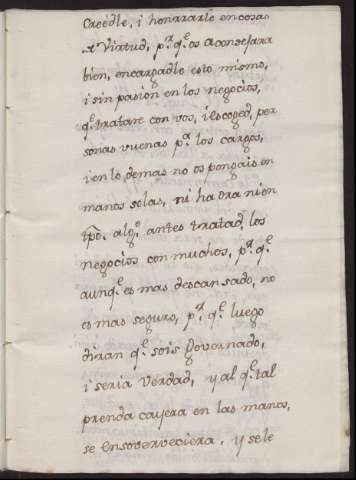 Creédle, i honrrarle en cosas
de Virtud, pr. qe. os aconsejara
bien, encargadle esto mismo,
i sin pasión en los negocios,
qe. tratare con vos, i Escoged, per
sonas vuenas pa. los cargos,
i en lo demas no os pongais en
manos solas, ni haora ni en
tpo. algo. antes tratad, los
negocios con muchos, pr. qe.
aunqe. es mas descansado, no
es mas seguro, pr. qe. luego
diran qe. sois Governado,
i seria Verdad, y al qe. tal
prenda cayera en las manos,
se ensoverveciera, y se le